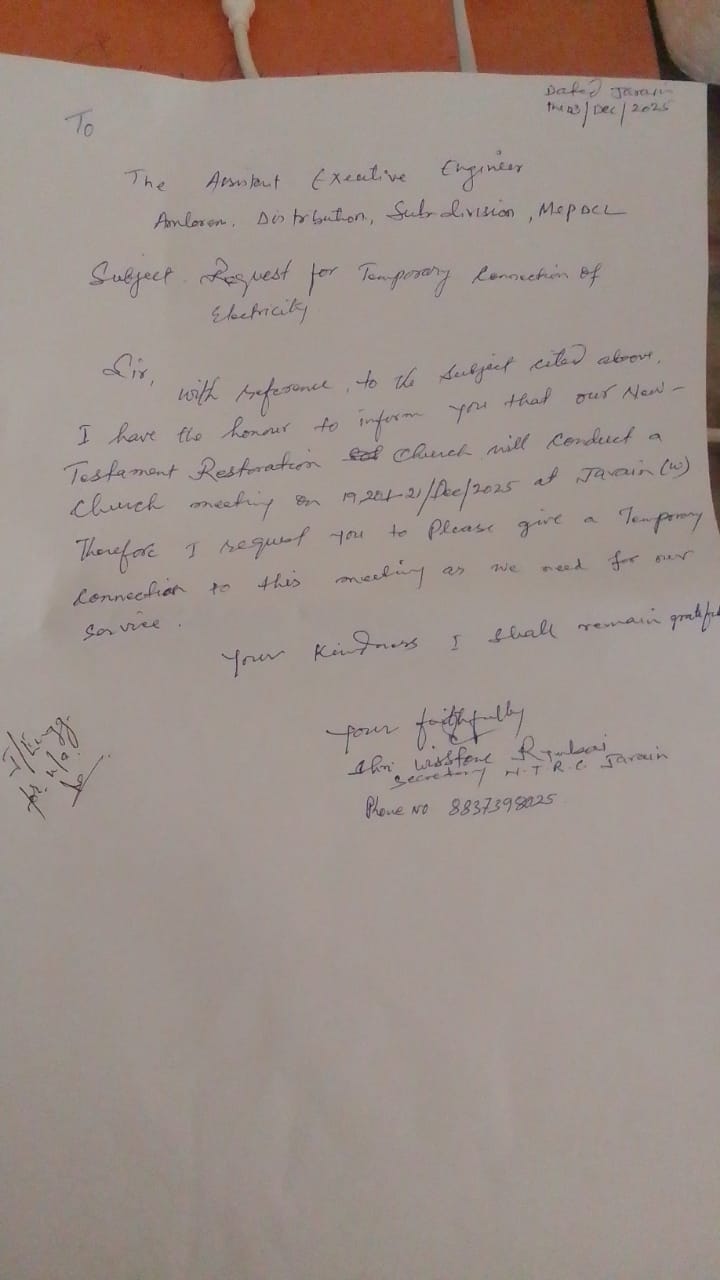 Dated Jarain
the 03/Dec/2025
To
The Assistant Executive Engineer
Amlarem, Distribution, Sub-division, MePDCL
Subject. Request for Temporary Connection of
Electricity
Sir,
with reference, to the subject cited above,
I have the honour to inform you that our New-
Testament Restoration Church will conduct a
Church meeting on 19,20&21/Dec/2025 at Jarain (W)
Therefore I request you to Please give a Temporary
Connection to this meeting as we need for our
Service.
Your Kindness I shall remain grateful
Your faithfully
Shri Wisstone Rymbai
Secretary N.T.R.C. Jarain
Phone No 8837398025